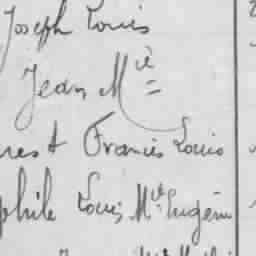 Joseph Louis
Jean Mie
nest Francis Louis
phile Louis, Mie Eugène